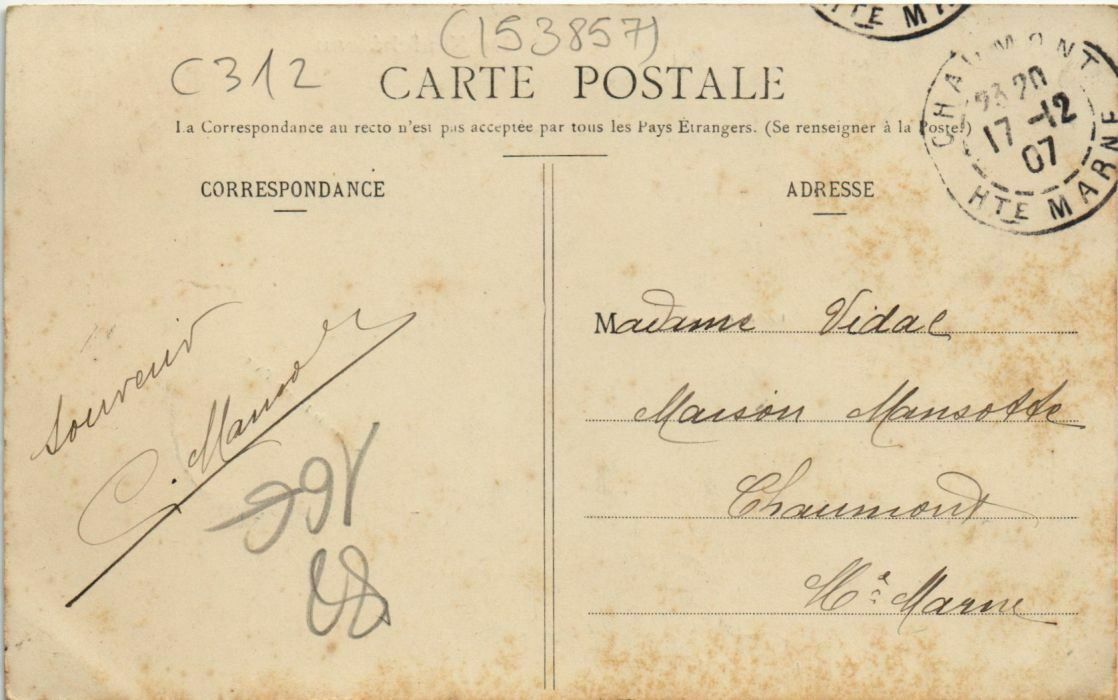 (153857)
C312
CARTE POSTALE
La Correspondance au recto n'est pas acceptée par tous les Pays Étrangers. (Se renseigner à la Poste.)
HTE MA
CHAUMONT
23 20
17 -12
07
HTE MARNE
CORRESPONDANCE
Souvenir
C.
ADRESSE
Madame Vidal
Maison Mansotte
Chaumont
Hte Marne